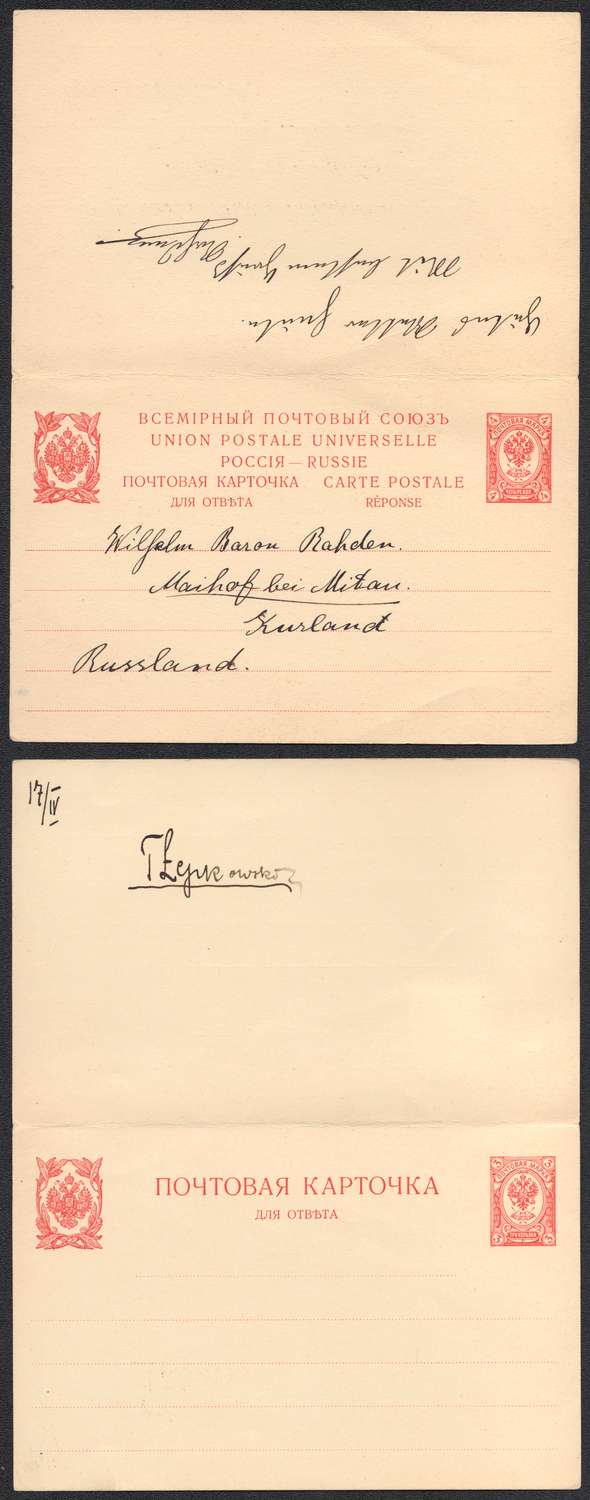 Mit
ВСЕМІРНЫЙ ПОЧТОВЫЙ СОЮЗЪ
UNION POSTALE UNIVERSELLE
РОССІЯ — RUSSIE
ПОЧТОВАЯ КАРТОЧКА CARTE POSTALE
ДЛЯ ОТВѢТА RÉPONSE
4 ПОЧТОВАЯ МАРКА 4
4 ЧЕТЫРЕ КОП. 4
Wilhelm Baron Rahden.
Maihof bei Mitau.
Kurland
Russland.
17/IV
TŁępkowski
ПОЧТОВАЯ КАРТОЧКА
ДЛЯ ОТВѢТА
3 ПОЧТОВАЯ МАРКА 3
3 ТРИ КОПѢЙКИ 3